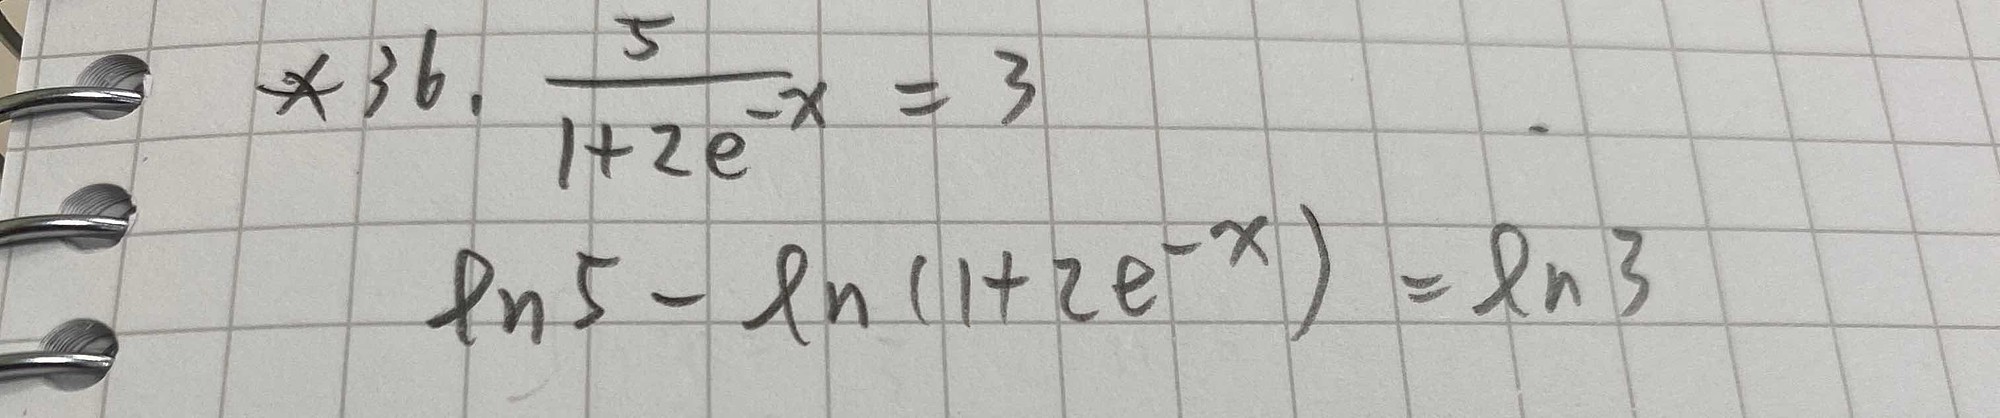 *36. 5/(1+2e^-x) = 3
ln5 - ln(1+2e^-x) = ln3